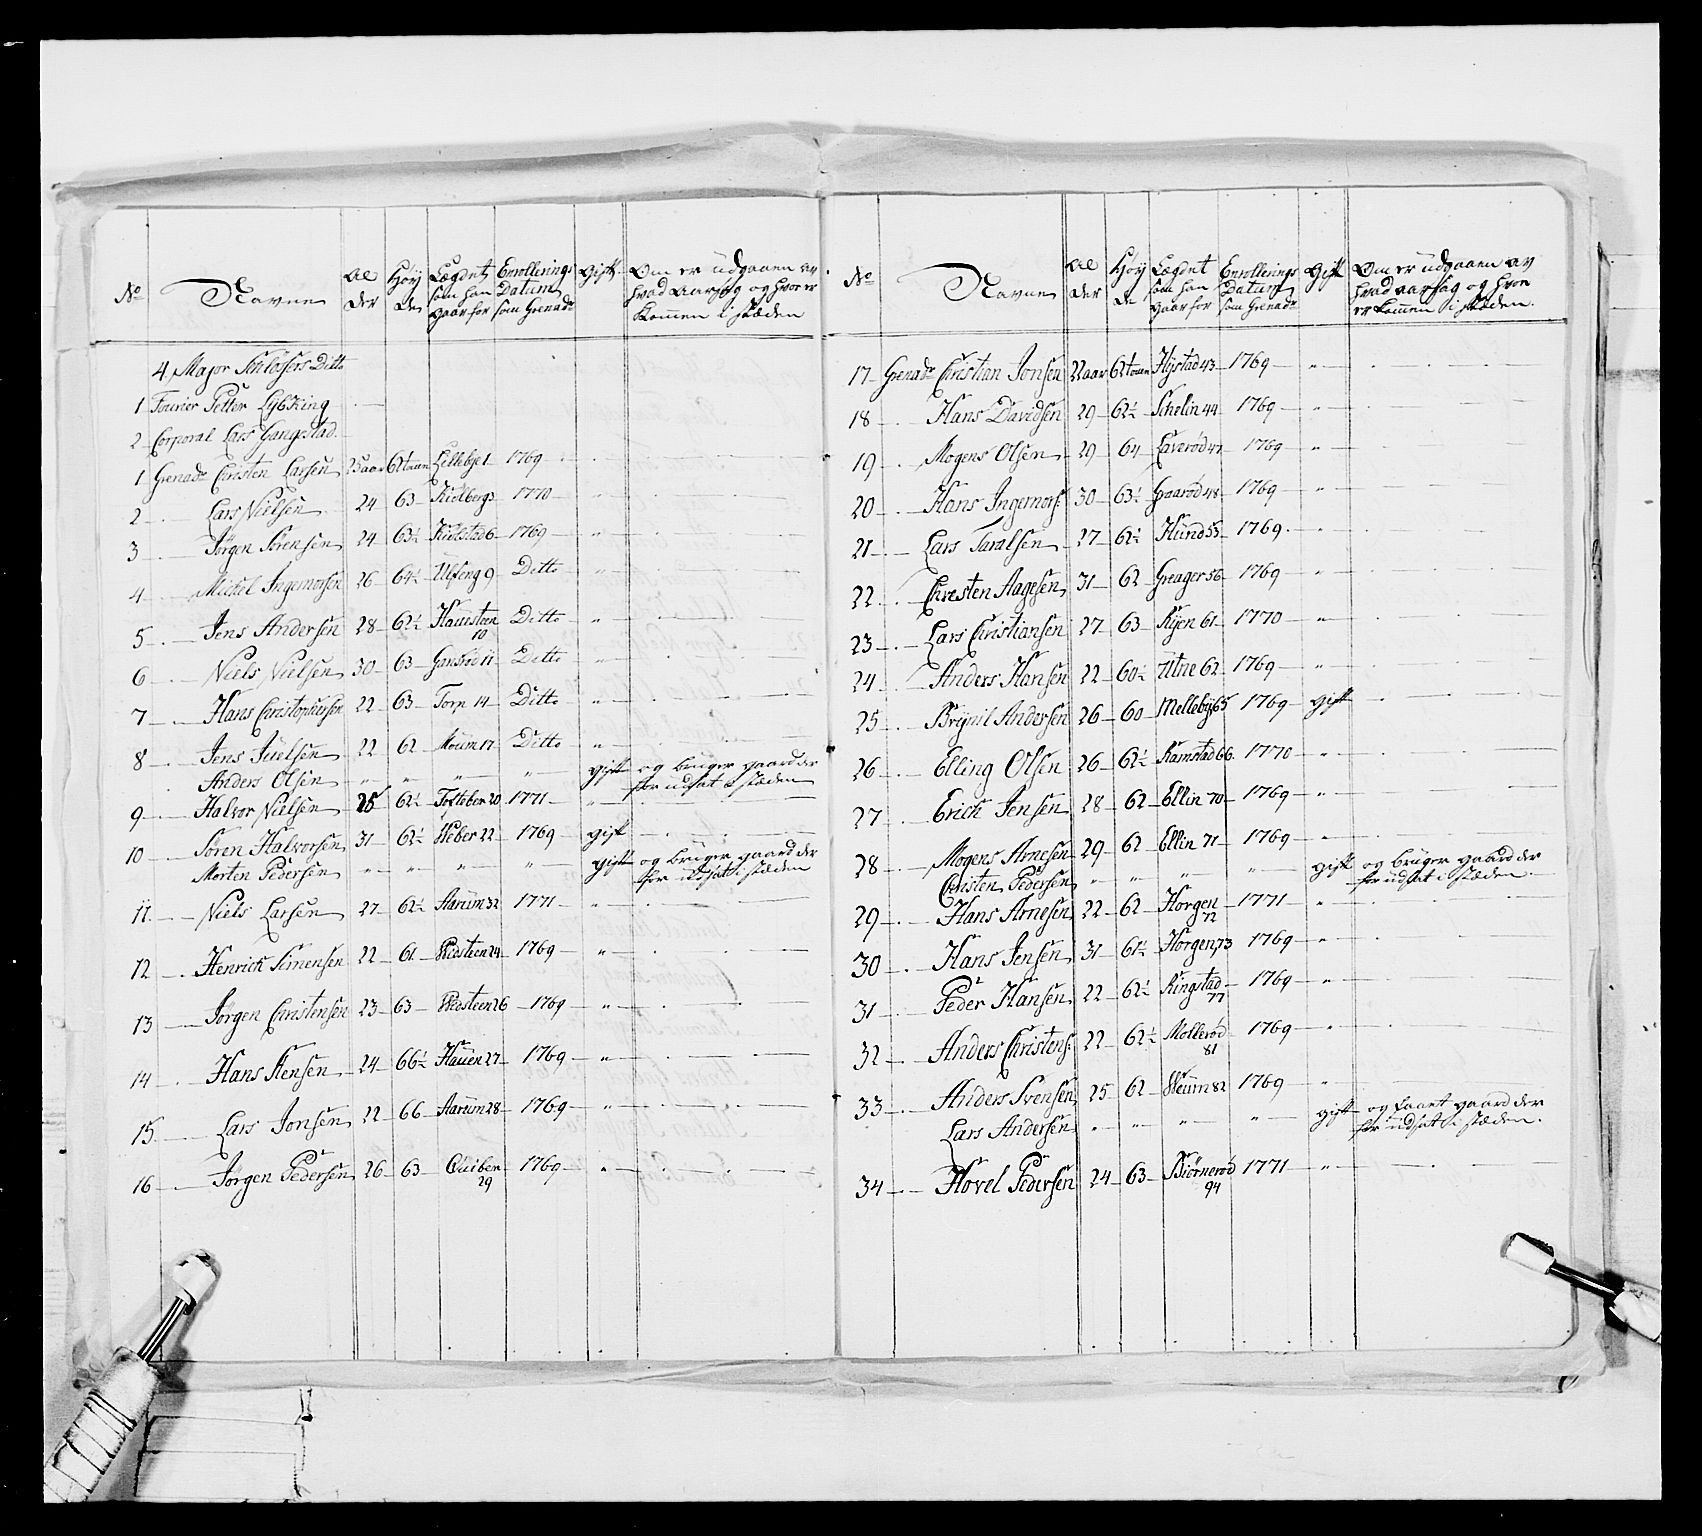 No Navne Al der Höy de Lægdet som han gaar for Enrollerings Datum som Grenadr gift Om er udgaaen av hvad aarsag og hvor er kommen i stæden
4 Major Schlösers Ditto
1 Fourier Petter Lybking
2 Corporal Lars Hangestad
1 Grenadr Christen Larsen 25 aar 62 tomm Lillebye 1 1769
2 Lars Nielsen 24 63 Kiølberg 3 1770 "
3 Jørgen Sørensen 24 63½ Kiølstad 6 1769 "
4 Michel Ingemorsen 26 64½ Ulfeng 9 Ditto "
5 Jens Andersen 28 62½ Hauesteen 10 Ditto "
6 Niels Nielsen 30 63 Gansrød 11 Ditto "
7 Hans Christophersen 22 63 Torp 14 Ditto "
8 Jens Juelsen 22 62 Moum 17 Ditto "
Anders Olsen " " " " gift og bruger gaard der for udsat i stæden
9 Halvor Nielsen 25 62½ Tofteber 20 1771 "
10 Søren Halvorsen 31 62½ Weber 22 1769 gift
Morten Pedersen " " " " gift og bruger gaard der for udsat i stæden
11 Niels Larsen 27 62½ Aarum 32 1771 "
12 Henrich Simensen 22 61 Widsteen 24 1769 "
13 Jørgen Christensen 23 63 Widsteen 26 1769 "
14 Hans Stensen 24 66½ Hauen 27 1769 "
15 Lars Jonsen 22 66 Aarum 28 1769 "
16 Jørgen Pedersen 26 63 Quiber 29 1769 "
No Navne Al der Höy de Lægdet som han gaar for Enrollerings Datum som Grenadr gift Om er udgaaen av hvad aarsag og hvor er kommen i stæden.
17 Grenadr Christian Jonsen 22 aar 62 tomm Hystad 43 1769 "
18 Hans Davidsen 29 62½ Schelin 44 1769 "
19 Mogens Olsen 29 64 Laverød 47 1769 "
20 Hans Ingemors: 30 63½ Gaarød 48 1769 "
21 Lars Taralsen 27 62½ Hund 53 1769 "
22 Christen Aagesen 31 62 Greager 56 1769 "
23 Lars Christiansen 27 63 Ryen 61 1770 "
24 Anders Hansen 22 60½ Utne 62 1769 "
25 Brynil Andersen 26 60 Melleby 65 1769 gift
26 Elling Olsen 26 62½ Ramstad 66 1770 "
27 Erich Jensen 28 62 Ellin 70 1769 "
28 Mogens Arnesen 29 62 Ellin 71 1769 "
Christen Pedersen " " " " gift og bruger gaard der for udsat i stæden
29 Hans Arnesen 22 62 Horgen 72 1771 "
30 Hans Jensen 31 61½ Horgen 73 1769 "
31 Peder Hansen 22 62½ Ringstad 77 1769 "
32 Anders Christens: 22 62½ Mollerød 81 1769 "
33 Anders Svensen 25 62 Weum 82 1769 "
Lars Andersen " " " " gift og faaet gaard der for udsat i stæden.
34 Hovel Pedersen 24 63 Biørnerød 94 1771 "